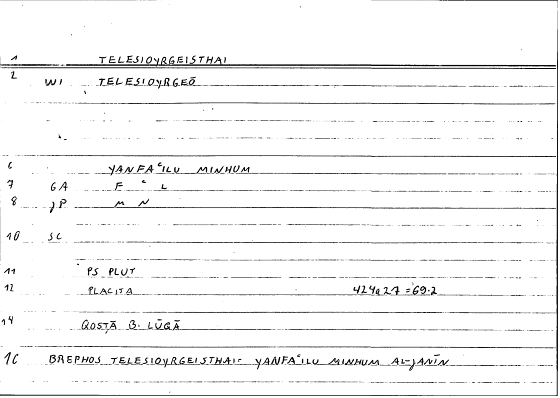 1 TELESIOYRGEISTHAI
2 WI TELESIOYRGEŌ
6 YANFAʿILU MINHUM
7 GA F ʿ L
8 JP M N
10 SC
11 PS PLUT
12 PLACITA 424a27 = 69.2
14 QOSṬĀ B. LŪQĀ
16 BREPHOS TELESIOYRGEISTHAI - YANFAʿILU MINHUM AL-JANĪN